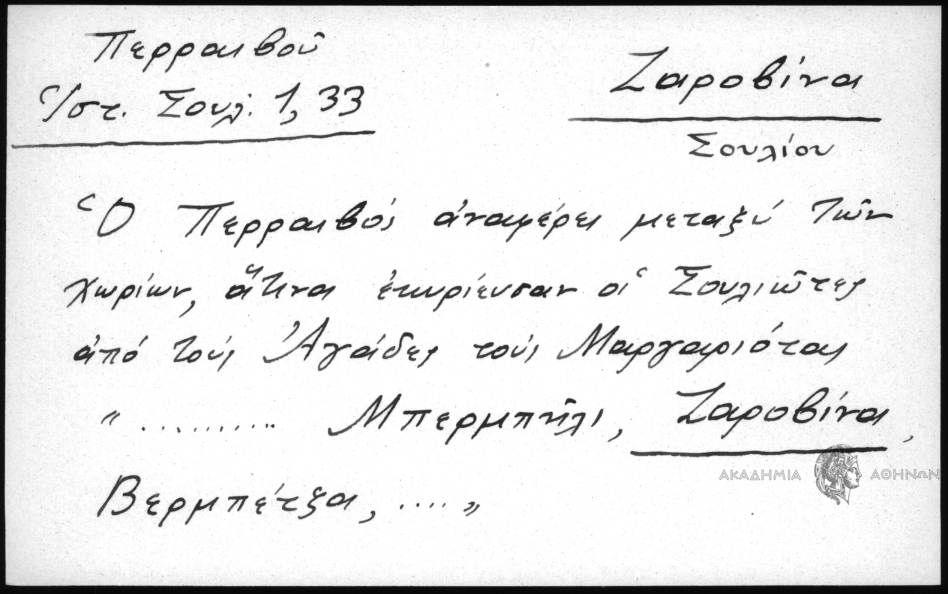 Περραιβοῦ
Ἱστ. Σουλ. 1, 33
Ζαροβίνα
Σουλίου
Ὁ Περραιβός ἀναφέρει μεταξύ τῶν
χωρίων, ἅτινα ἐκυρίευσαν οἱ Σουλιῶτες
ἀπό τούς Ἀγάδες τούς Μαργαριότας
" .......... Μπερμπῆλι, Ζαροβίνα,
Βερμπέτζα, .... "
ΑΚΑΔΗΜΙΑ ΑΘΗΝΩΝ